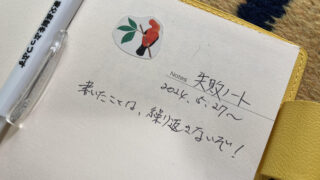 Notes 失敗ノート
2024.5.27〜
書いたことは、繰り返さないぞい!